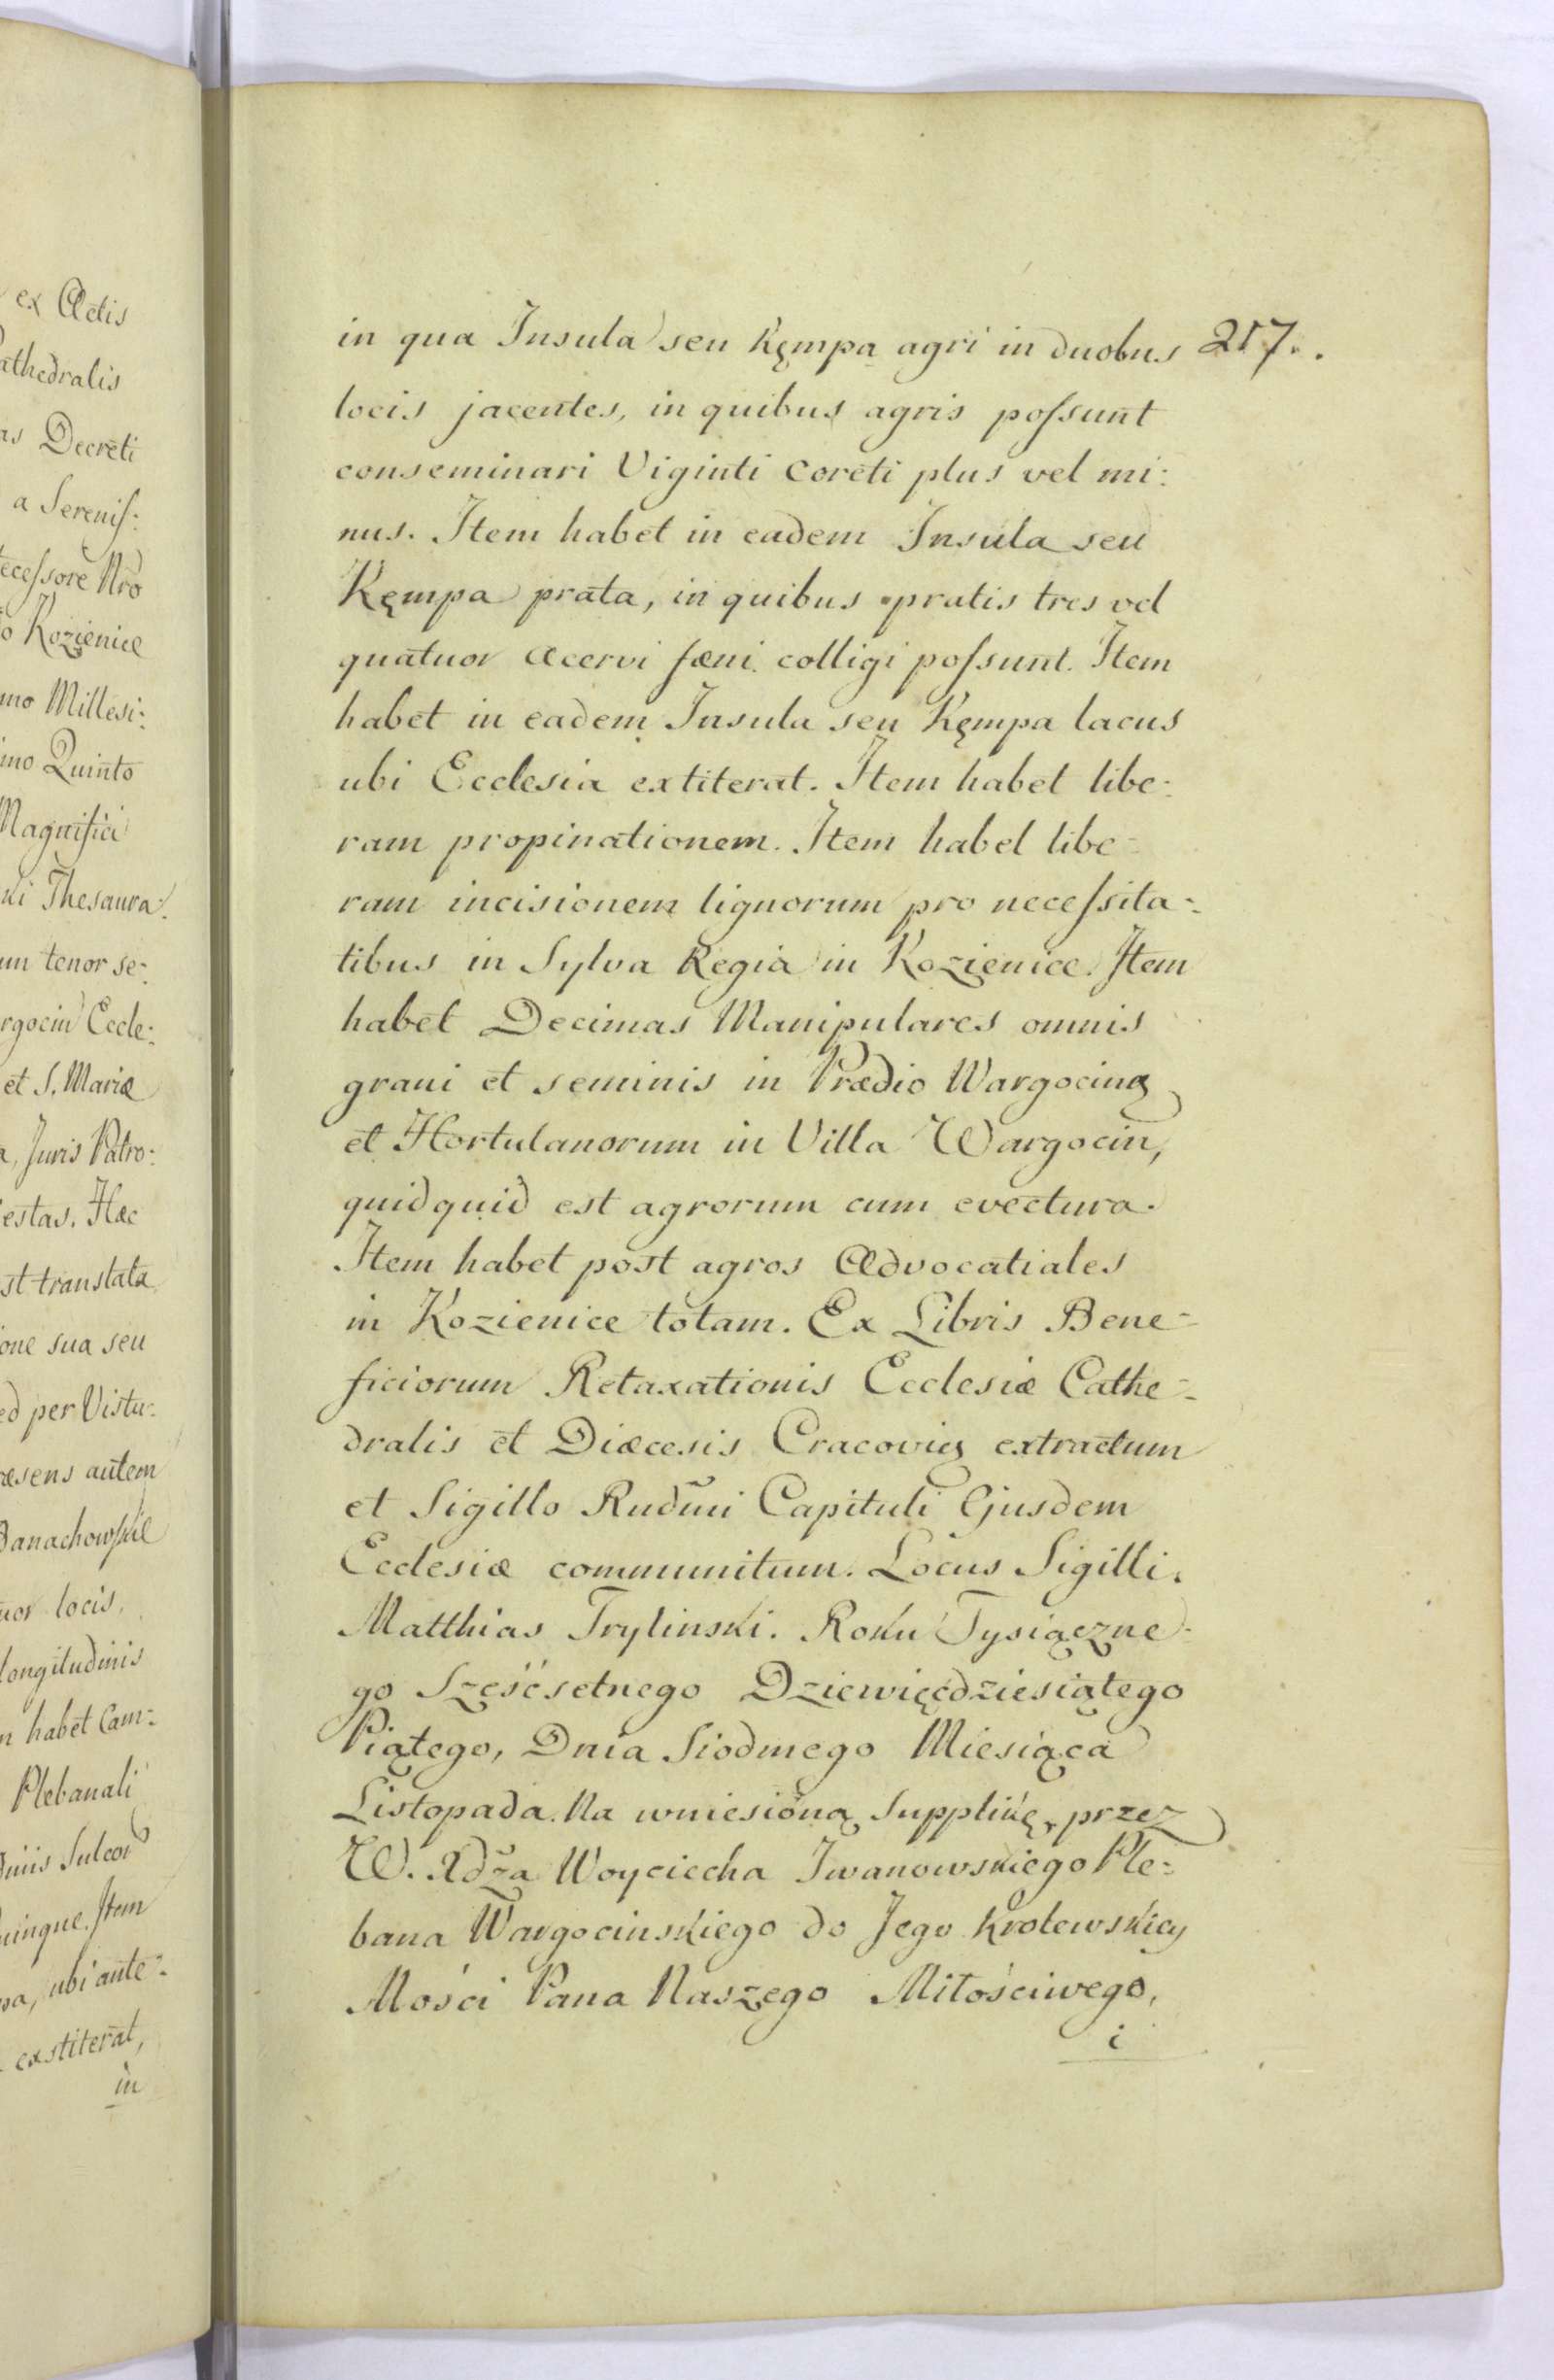 ex Actis
athedralis
as Decreti
a Sereniſ:
eceſsore Nro
o Kozienice
mo Millesi:
imo Quinto
Magnifici
ki Thesaura:
um tenor se:
rgocin Eccle:
et S. Mariæ
a, Juris Patro:
estas. Hæc
st translata
one sua seu
ed per Vistu:
æsens autem
Banachowſkie
uor locis,
longitudinis
m habet Cam:
Plebanali
dinis Sulcor
uinque. Item
pa, ubi ante:
exstiterat,
in
217.
in qua Insula seu Kępa agri in duobus
locis jacentes, in quibus agris poſsunt
conseminari Viginti Coreti plus vel mi:
nus. Item habet in eadem Insula seu
Kęmpa prata, in quibus pratis tres vel
quatuor Acervi fæni colligi poſsunt. Item
habet in eadem Insula seu Kęmpa lacus
ubi Ecclesia extiterat. Item habet libe:
ram propinationem. Item habet libe:
ram incisionem lignorum pro neceſsita:
tibus in Sylva Regia in Kozienice. Item
habet Decimas Manipulares omnis
grani et seminis in Prædio Wargocinę
et Hortulanorum in Villa Wargocin,
quidquid est agrorum cum evectura.
Item habet post agros Advocatiales
in Kozienice totam. Ex Libris Bene:
ficiorum Retaxationis Ecclesiæ Cathe:
dralis et Diæcesis Cracovię extractum
et Sigillo Rudm̃i Capituli Ejusdem
Ecclesiæ communitum. Locus Sigilli.
Matthias Trylinski. Roku Tysiączne:
go Sześćsetnego Dziewięćdziesiątego
Piątego, Dnia Siodmego Miesiąca
Listopada. Na wniesioną Supplikę, przez
W. Xdža Woyciecha Iwanowskiego Ple:
bana Wargocinskiego do Jego Krolewskiey
Mości Pana Naszego Miłościwego,
i